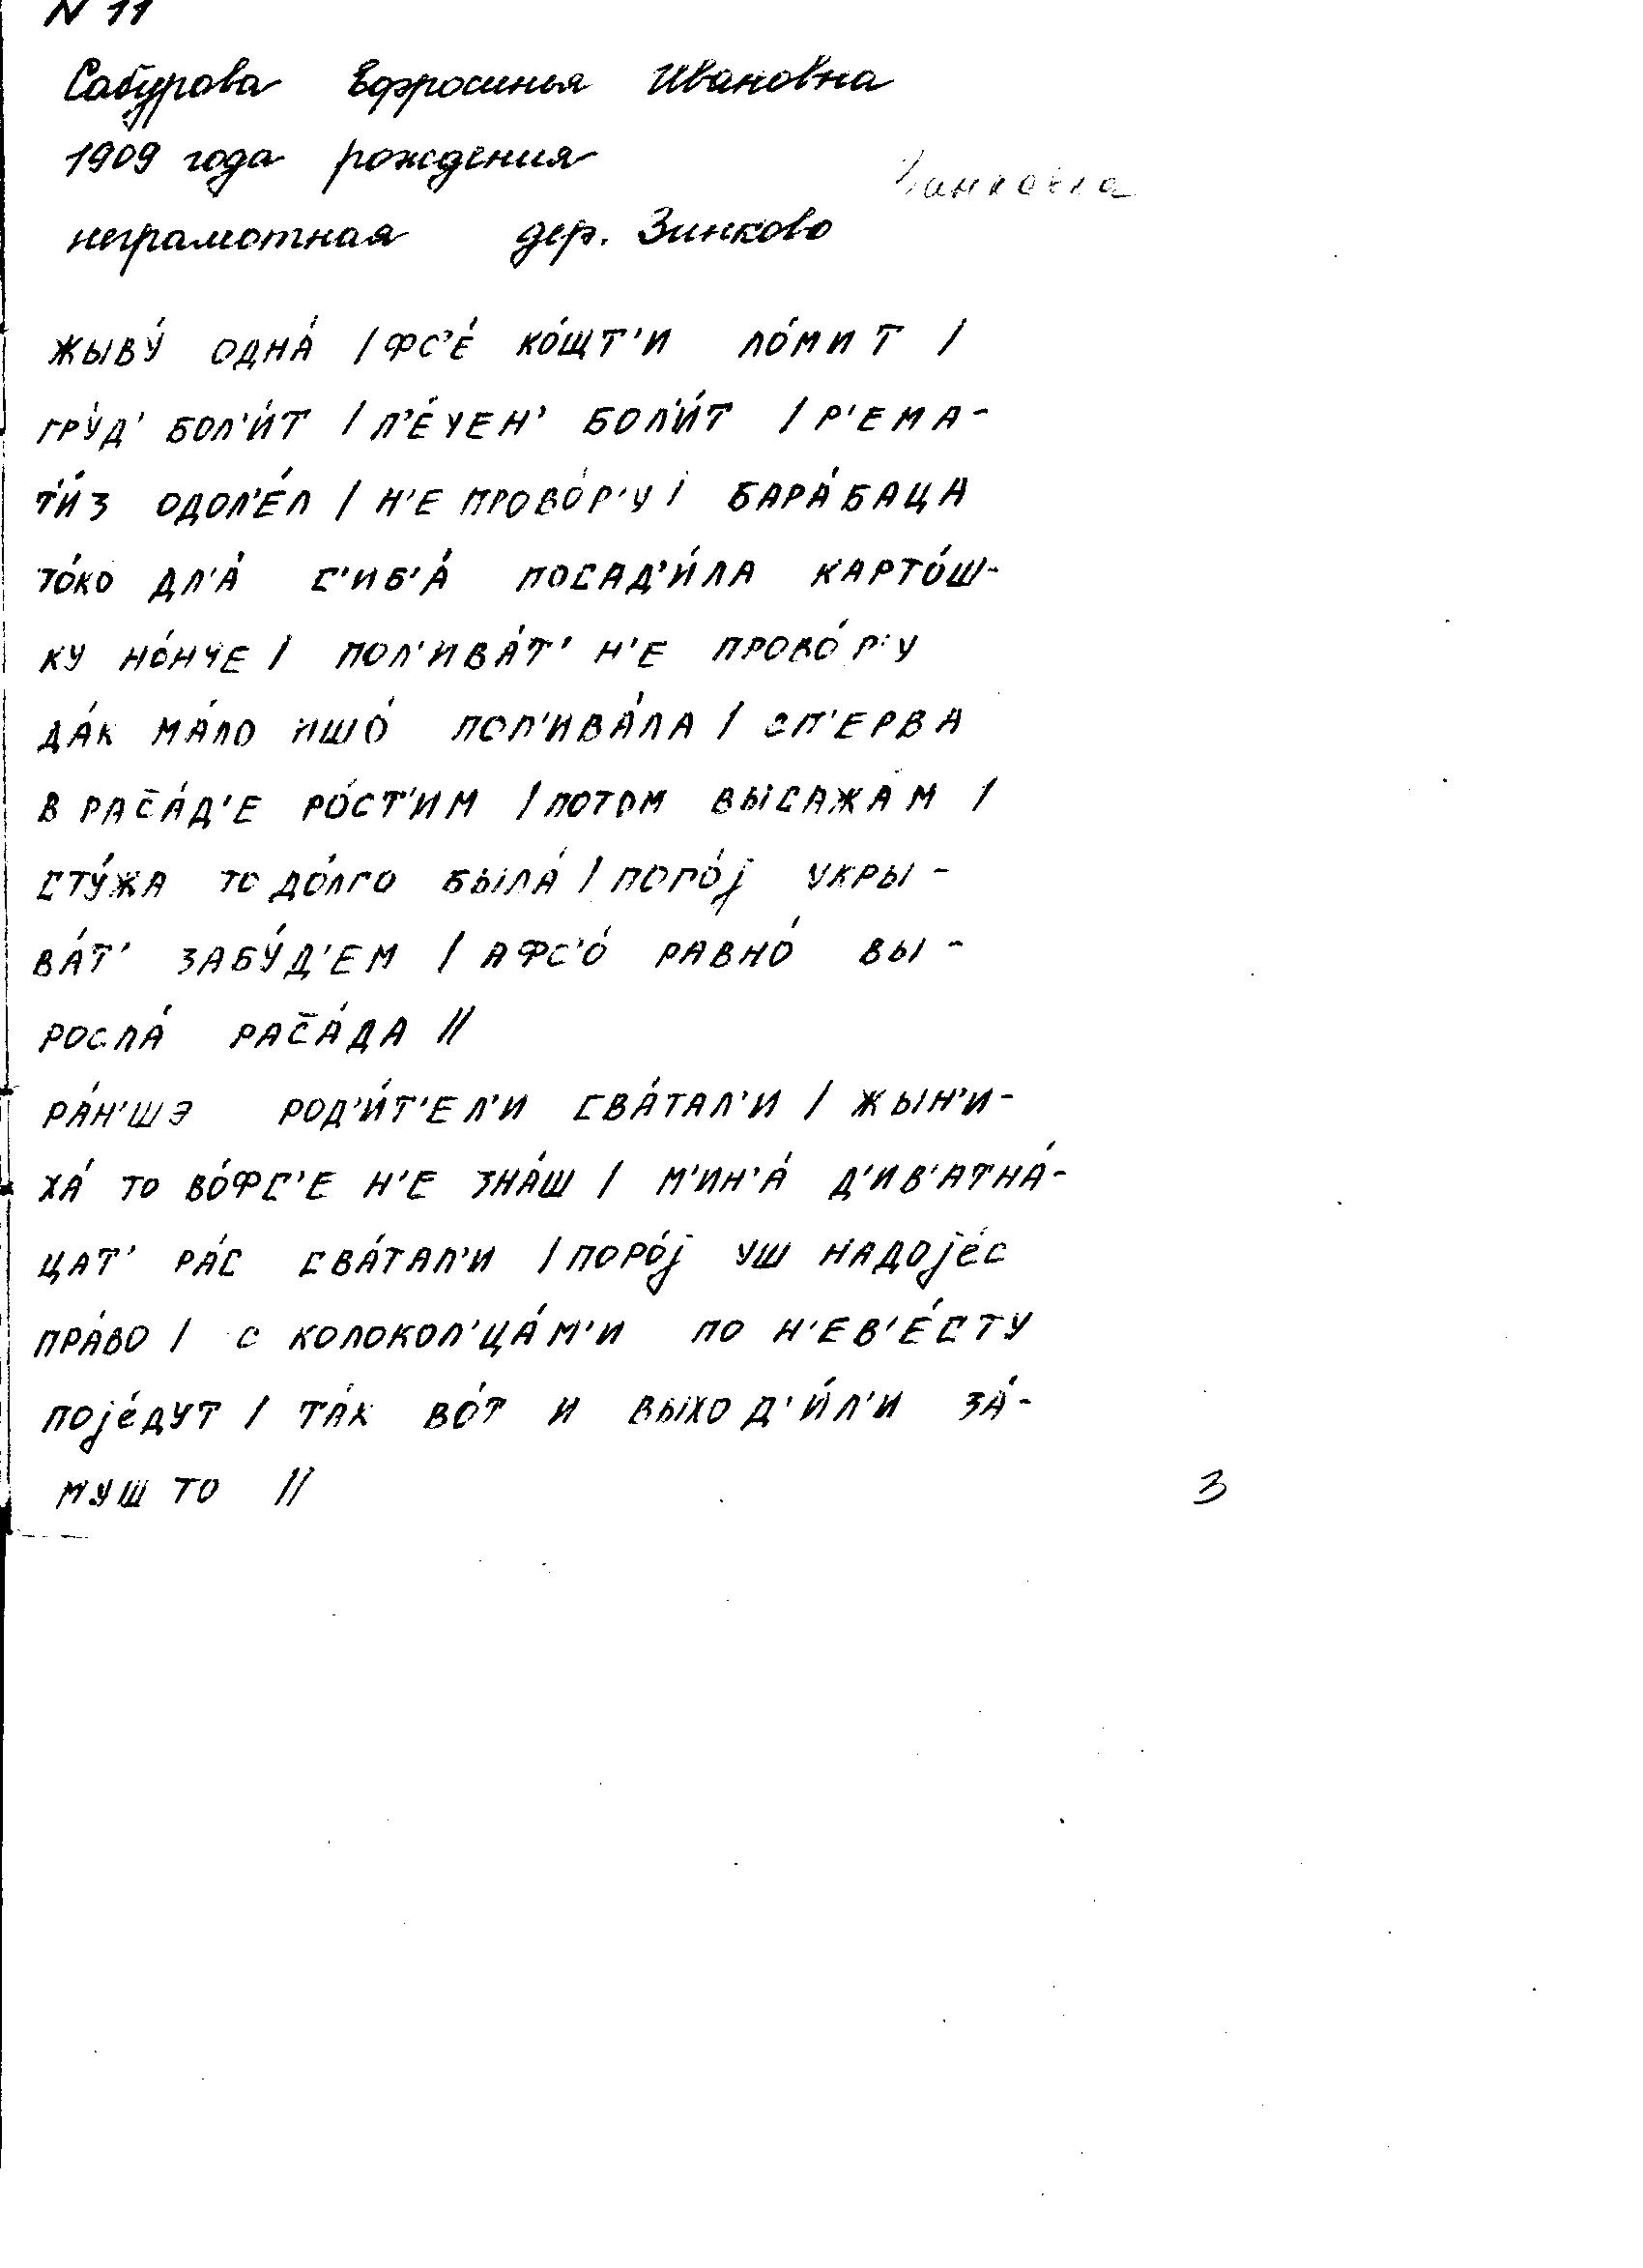 N 11
Сабурова Ефросинья Ивановна
1909 года рождения
неграмотная дер. Зинково
ЖЫВУ́ ОДНА́ / ФС'Е́ КО́ЩТ'И ЛО́МИТ /
ГРУ́Д' БОЛ'И́Т / П'Е́ЧЕН' БОЛ'И́Т / Р'ЕМА-
Т'И́З ОДОЛ'Е́Л / Н'Е ПРОВО́Р'У / БАРА́БАЦА
ТО́КО ДЛ'А́ С'ИБ'А́ ПОСАД'И́ЛА КАРТО́Ш-
КУ НО́НЧЕ / ПОЛ'ИВА́Т' Н'Е ПРОВО́Р'У
ДА́К МА́ЛО ИШО́ ПОЛ'ИВА́ЛА / СП'ЕРВА
В РАС̄А́Д'Е РО́СТ'ИМ / ПОТОМ ВЫСАЖА́М /
СТУ́ЖА ТО ДО́ЛГО БЫЛА́ / ПОРО́j УКРЫ-
ВА́Т' ЗАБУ́Д'ЕМ / А ФС'О́ РАВНО́ ВЫ-
РОСЛА́ РАС̄А́ДА //
РА́Н'ШЭ РОД'И́Т'ЕЛ'И СВА́ТАЛ'И / ЖЫН'И-
ХА́ ТО ВО́ФС'Е Н'Е ЗНА́Ш / М'ИН'А́ Д'ИВ'АТНА́-
ЦАТ' РА́С СВА́ТАЛ'И / ПОРО́j УШ НАДОjе́С
ПРА́ВО / С КОЛОКОЛ'ЦА́М'И ПО Н'ЕВ'Е́СТУ
ПОjе́ДУТ / ТА́К ВО́Т И ВЫХОД'И́Л'И ЗА́-
МУШ ТО //
3